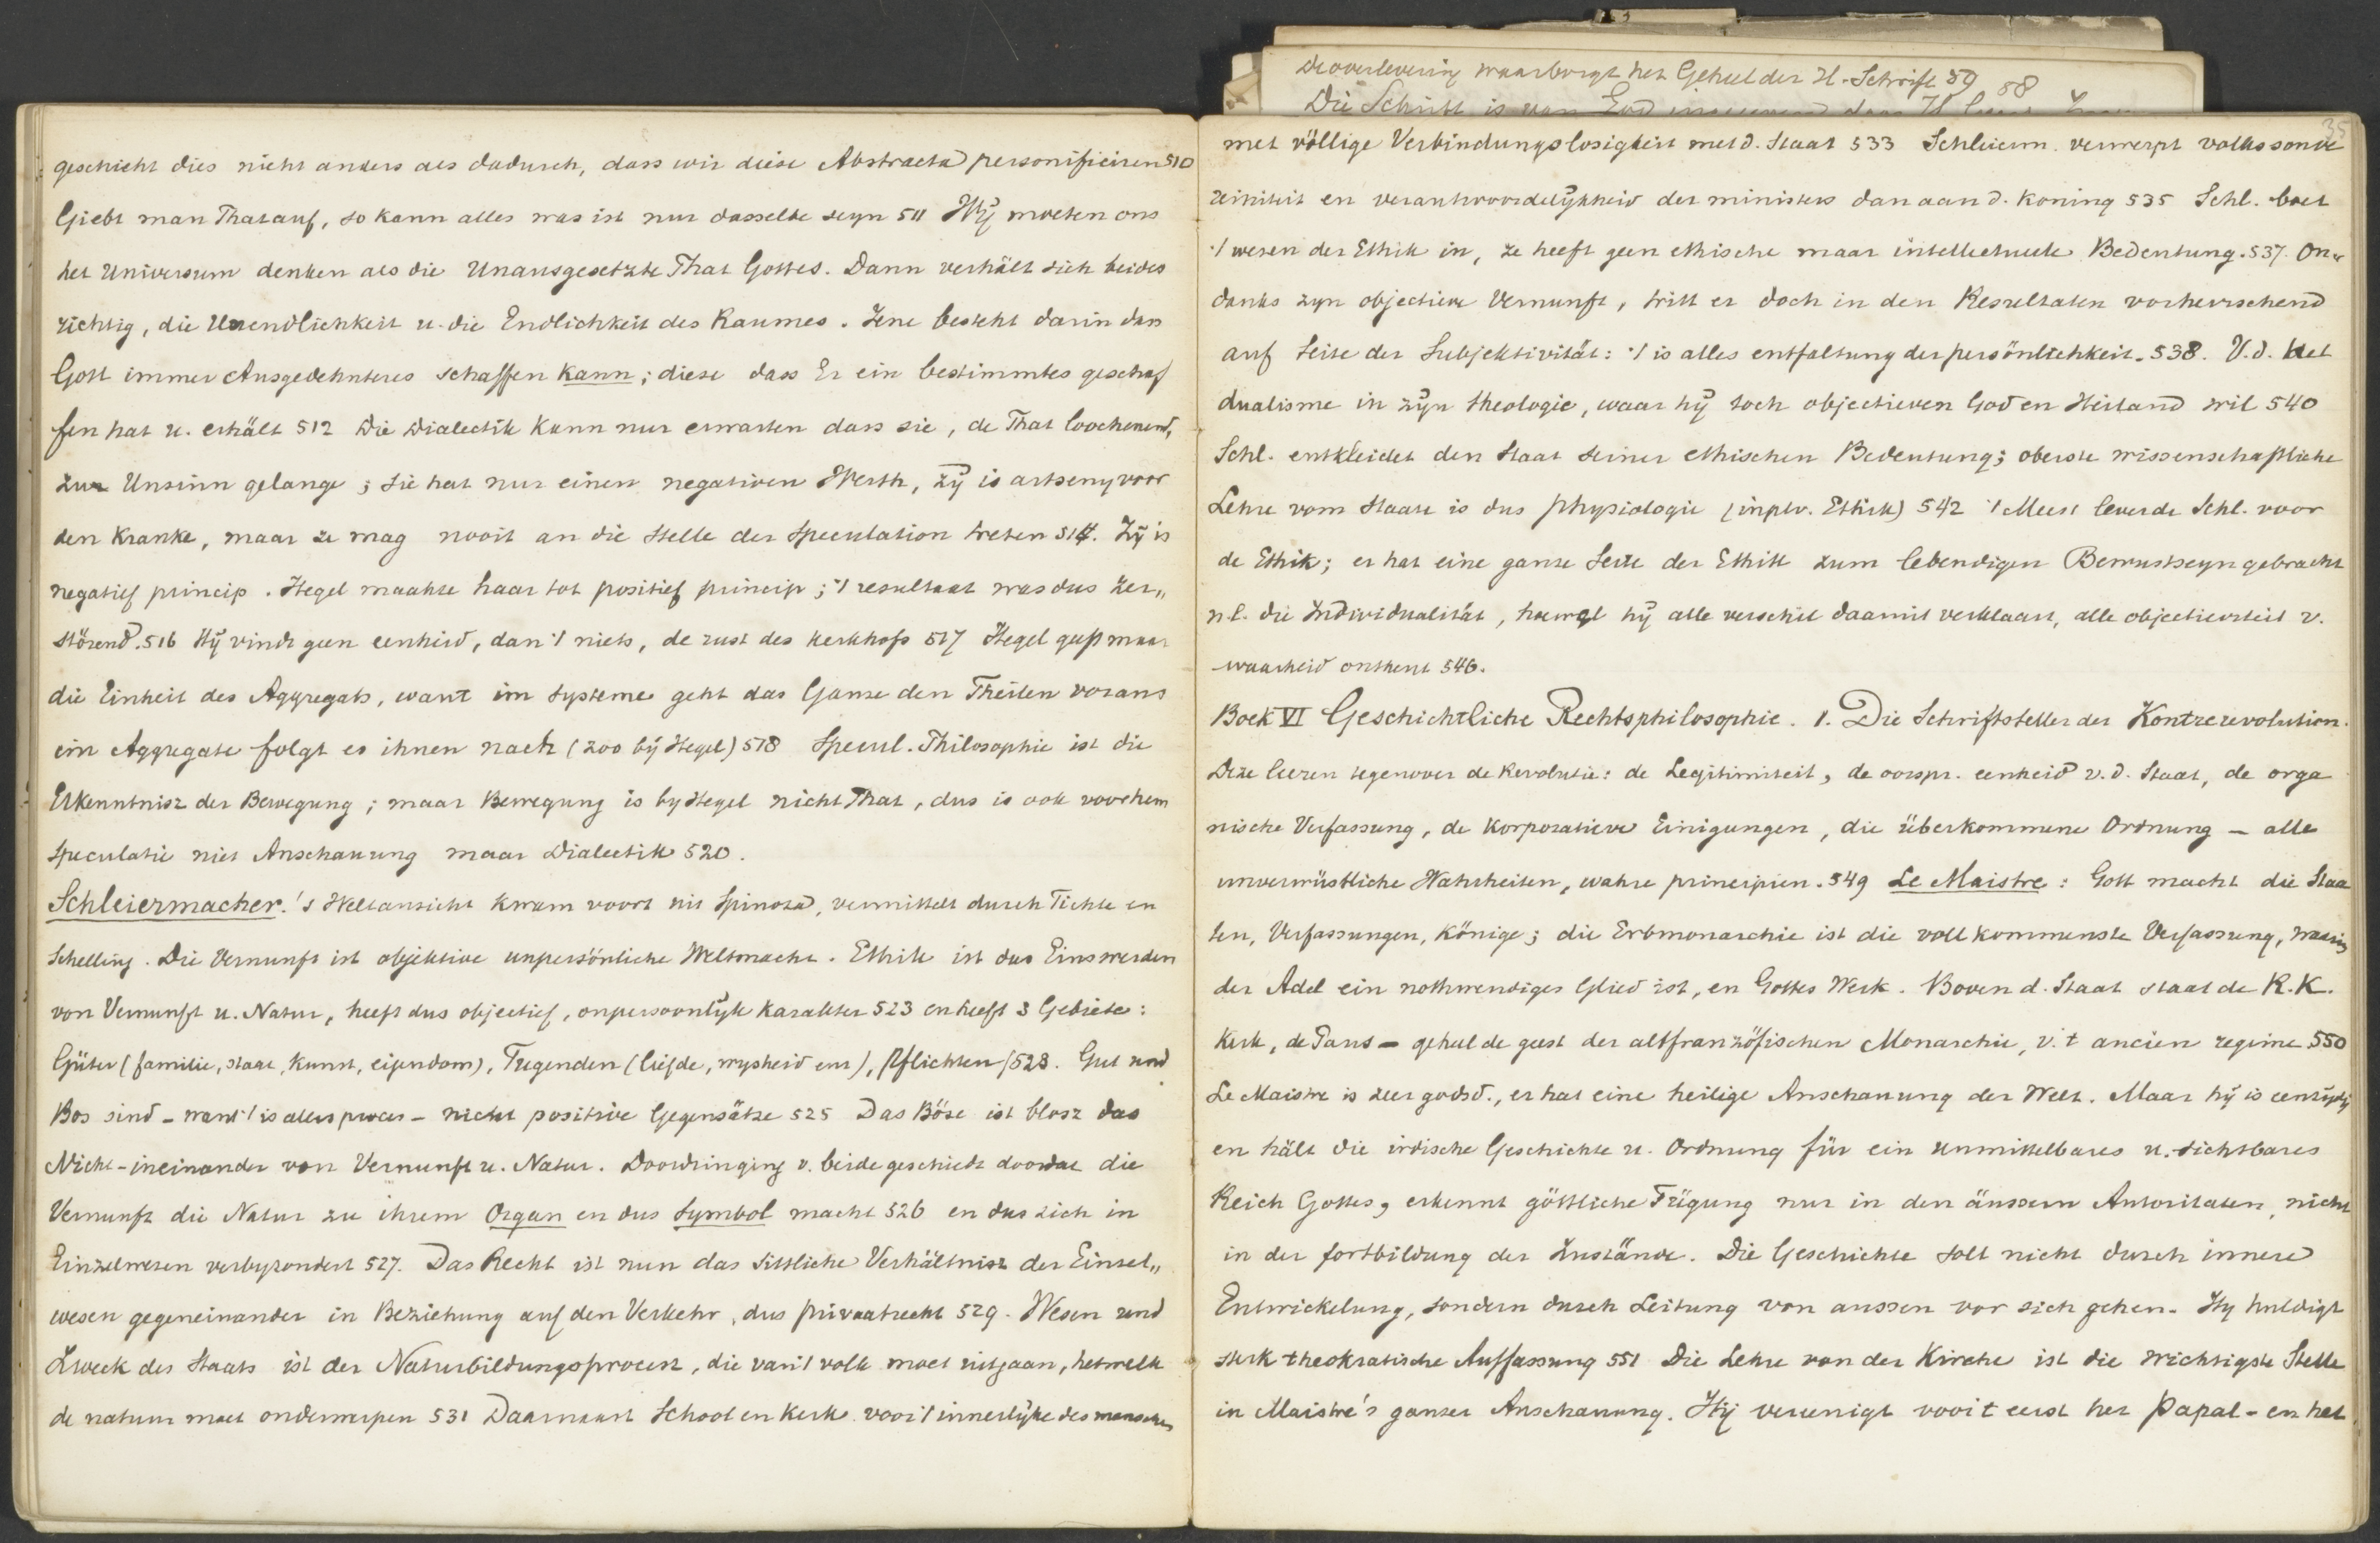 geschieht dies nicht anders als dadurch, dass wir diese Abstracta personificiren 510
Giebt man That auf, so kann alles was ist nur dasselbe seyn 511 Wij moeten ons
het Universum denken als die Unausgesetzte That Gottes. Dann verhält sich beides
richtig, die Unendlichkeit u. die Endlichkeit des Raumes. Jene besteht darin dass
Gott immer Ausgedehnteres schaffen kann; diese dass Er ein bestimmtes geschaf
fen hat u. erhält 512 Die Dialectik kann nur erwarten dass sie, de That loochenend,
zur Unsinn gelange; sie hat nur einen negativen Werth, zij is artseny voor
den Kranke, maar ze mag nooit an die Stelle der Speculation treten 514. Zij is
negatief princip. Hegel maakte haar tot positief princip; 't resultaat was dus zer„
störend. 516 Hij vindt geen eenheid, dan 't niets, de rust des kerkhofs 517 Hegel geeft maar
die Einheit des Aggregats, want im Systeme geht das Ganze den Theilen voraus
im Aggregate folgt es ihnen nach (zoo bij Hegel) 518 Specul. Philosophie ist die
Erkenntnisz der Bewegung; maar Bewegung is by Hegel nicht That, dus is ook voor hem
speculatie niet Anschauung maar Dialectik 520.
Schleiermacher.'s Weltansicht kwam voort uit Spinoza, vermittelt durch Fichte en
Schelling. Die Vernunft ist objektive unpersönliche Weltmacht. Ethik ist das Einswerden
von Vernunft u. Natur, heeft dus objectief, onpersoonlijk karakter 523 en heeft 3 Gebiete:
Güter (familie, staat, Kunst, eigendom), Tugenden (liefde, wysheid enz), Pflichten / 523. Gut und
Bos sind - want 't is alles proces - nicht positive Gegensätze 525 Das Böse ist blosz das
Nicht-ineinander von Vernunft u. Natur. Doordringing v. beide geschiedt doordat die
Vernunft die Natur zu ihrem Organ en dus Symbol macht 526 en dus sich in
Einzelwesen verbyzondert 527. Das Recht ist nun das sittliche Verhältnisz der Einzel„
wesen gegeneinander in Beziehung auf den Verkehr, dus privaatrecht 529. Wesen und
Zweck des Staats ist der Naturbildungsprocess, die van 't volk moet uitgaan, hetwelk
de natuur moet onderwerpen 531 Daarnaast School en Kerk voor 't innerlijke des menschen
De overlevering waarborgt het Geheel der H. Schrift 59 58
Die Schrift is van God
35
met völlige Verbindungslosigkeit met d. Staat 533 Schleierm. verwerpt volkssouve
reiniteit en verantwoordelijkheid der ministers dan aan d. Koning 535 Schl. boet
't wesen der Ethik in, ze heeft geen ethische maar intellectueele Bedeutung. 537. On„
danks zyn objectieve Vernunft, tritt er doch in den Resultaten vorherrschend
auf Seite der Subjektivität: 't is alles entfaltung der persönlichkeit. 538. V. d. het
dualisme in zijn theologie, waar hij toch objectieven God en Heiland wil 540
Schl. entkleidet den Staat seiner ethischen Bedeutung; oberste wissenschaftliche
Lehre vom Staate is dus physiologie (inplv. Ethik) 542 't Meest leverde Schl. voor
de Ethik; er hat eine ganze Seite der Ethik zum lebendigen Bewustseyn gebracht
n.l. die Individualität, hoewel hij alle verschil daarmit verklaart, alle objectiviteit v.
waarheid ontkent 546.
Boek VI Geschichtliche Rechtsphilosophie. 1. Die Schriftsteller der Kontrerevolution.
Deze leeren tegenover de Revolutie: de Legitimiteit, de oorspr. eenheid v. d. Staat, de orga
nische Verfassung, de Korporatieve Einigungen, die überkommene Ordnung - alle
unverwüstliche Wahrheiten, wahre principien. 549 Le Maistre: Gott macht die Staa
ten, Verfassungen, Könige; die Erbmonarchie ist die vollkommenste Verfassung, waarin
der Adel ein nothwendiges Glied ist, en Gottes Werk. Boven d. Staat staat de R.K.
Kerk, de Paus - geheel de geest der altfranzöfischen Monarchie, v. 't ancien regime 550
Le Maistre is zeer godsd., er hat eine heilige Anschauung der Welt. Maar hij is eenzijdig
en hält die irdische Geschichte u. Ordnung für ein unmittelbares u. sichtbares
Reich Gottes, erkennt göttliche Fügung nur in den äussern Autoritaten, nicht
in der fortbildung der Zustände. Die Geschichte soll nicht durch innere
Entwickelung, sondern durch Leitung von aussen vor sich gehen. Hy huldigt
sterk theokratische Auffassung 551 Die Lehre von der Kirche ist die wichtigste Stelle
in Maistre's ganzer Anschauung. Hij vereenigt voor 't eerst het Papal- en het